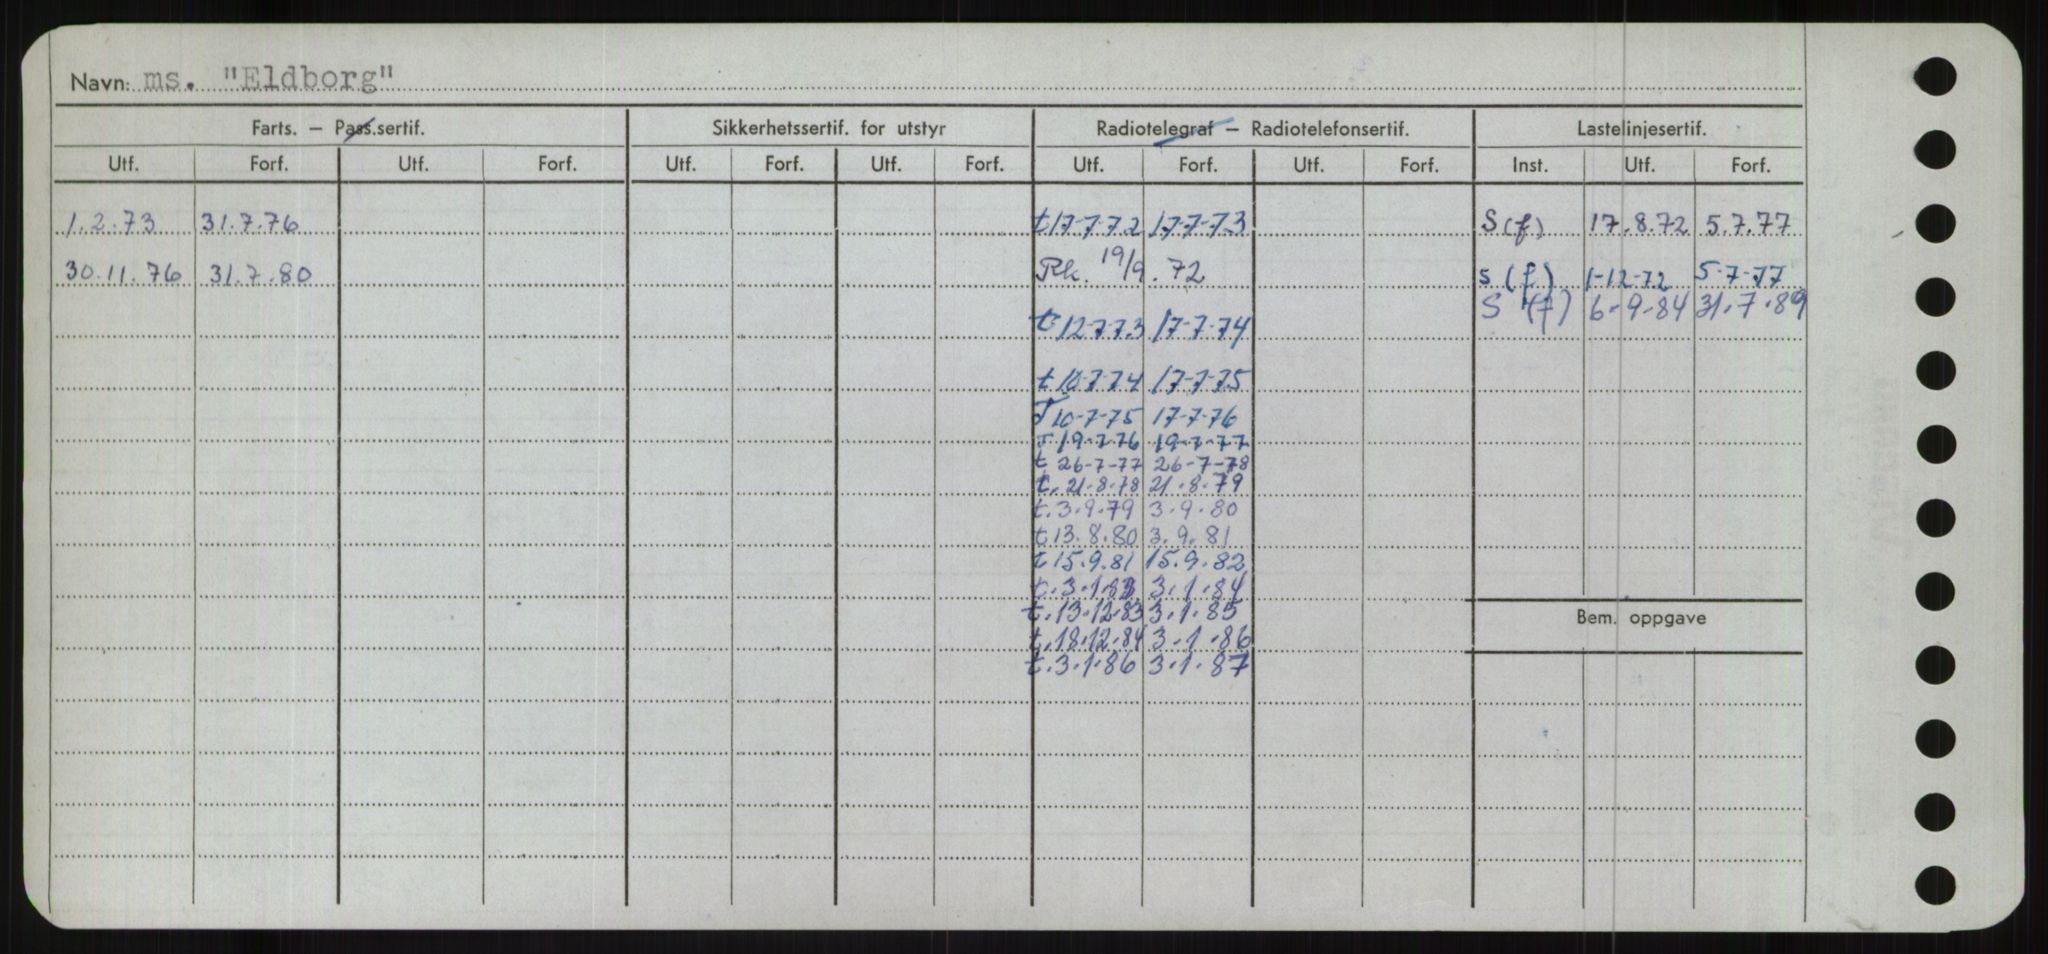 Navn: ms. "Eldborg"
Farts. – Pass.sertif. Sikkerhetssertif. for utstyr Radiotelegraf – Radiotelefonsertif. Lastelinjesertif.
Utf. Forf. Utf. Forf. Utf. Forf. Utf. Forf. Utf. Forf. Utf. Forf. Inst. Utf. Forf.
1.2.73 31.7.76 t 17-7-72 17-7-73 S (f) 17.8.72 5.7.77
30.11.76 31.7.80 Rk. 19/9.72 s (f) 1-12-72 5-7-77
S (f) 6.9.84 31.7.89
t 12-7-73 17-7-74
t 10-7-74 17-7-75
T 10-7-75 17-7-76
T 19-7-76 19-7-77
t 26-7-77 26-7-78
t. 21.8.78 21.8.79
t. 3.9.79 3.9.80
t 13.8.80 3.9.81
t 15.9.81 15.9.82
t. 3.1.83 3.1.84
t. 13.12.83 3.1.85
Bem. oppgave
t. 18.12.84 3.1.86
t. 3.1.86 3.1.87